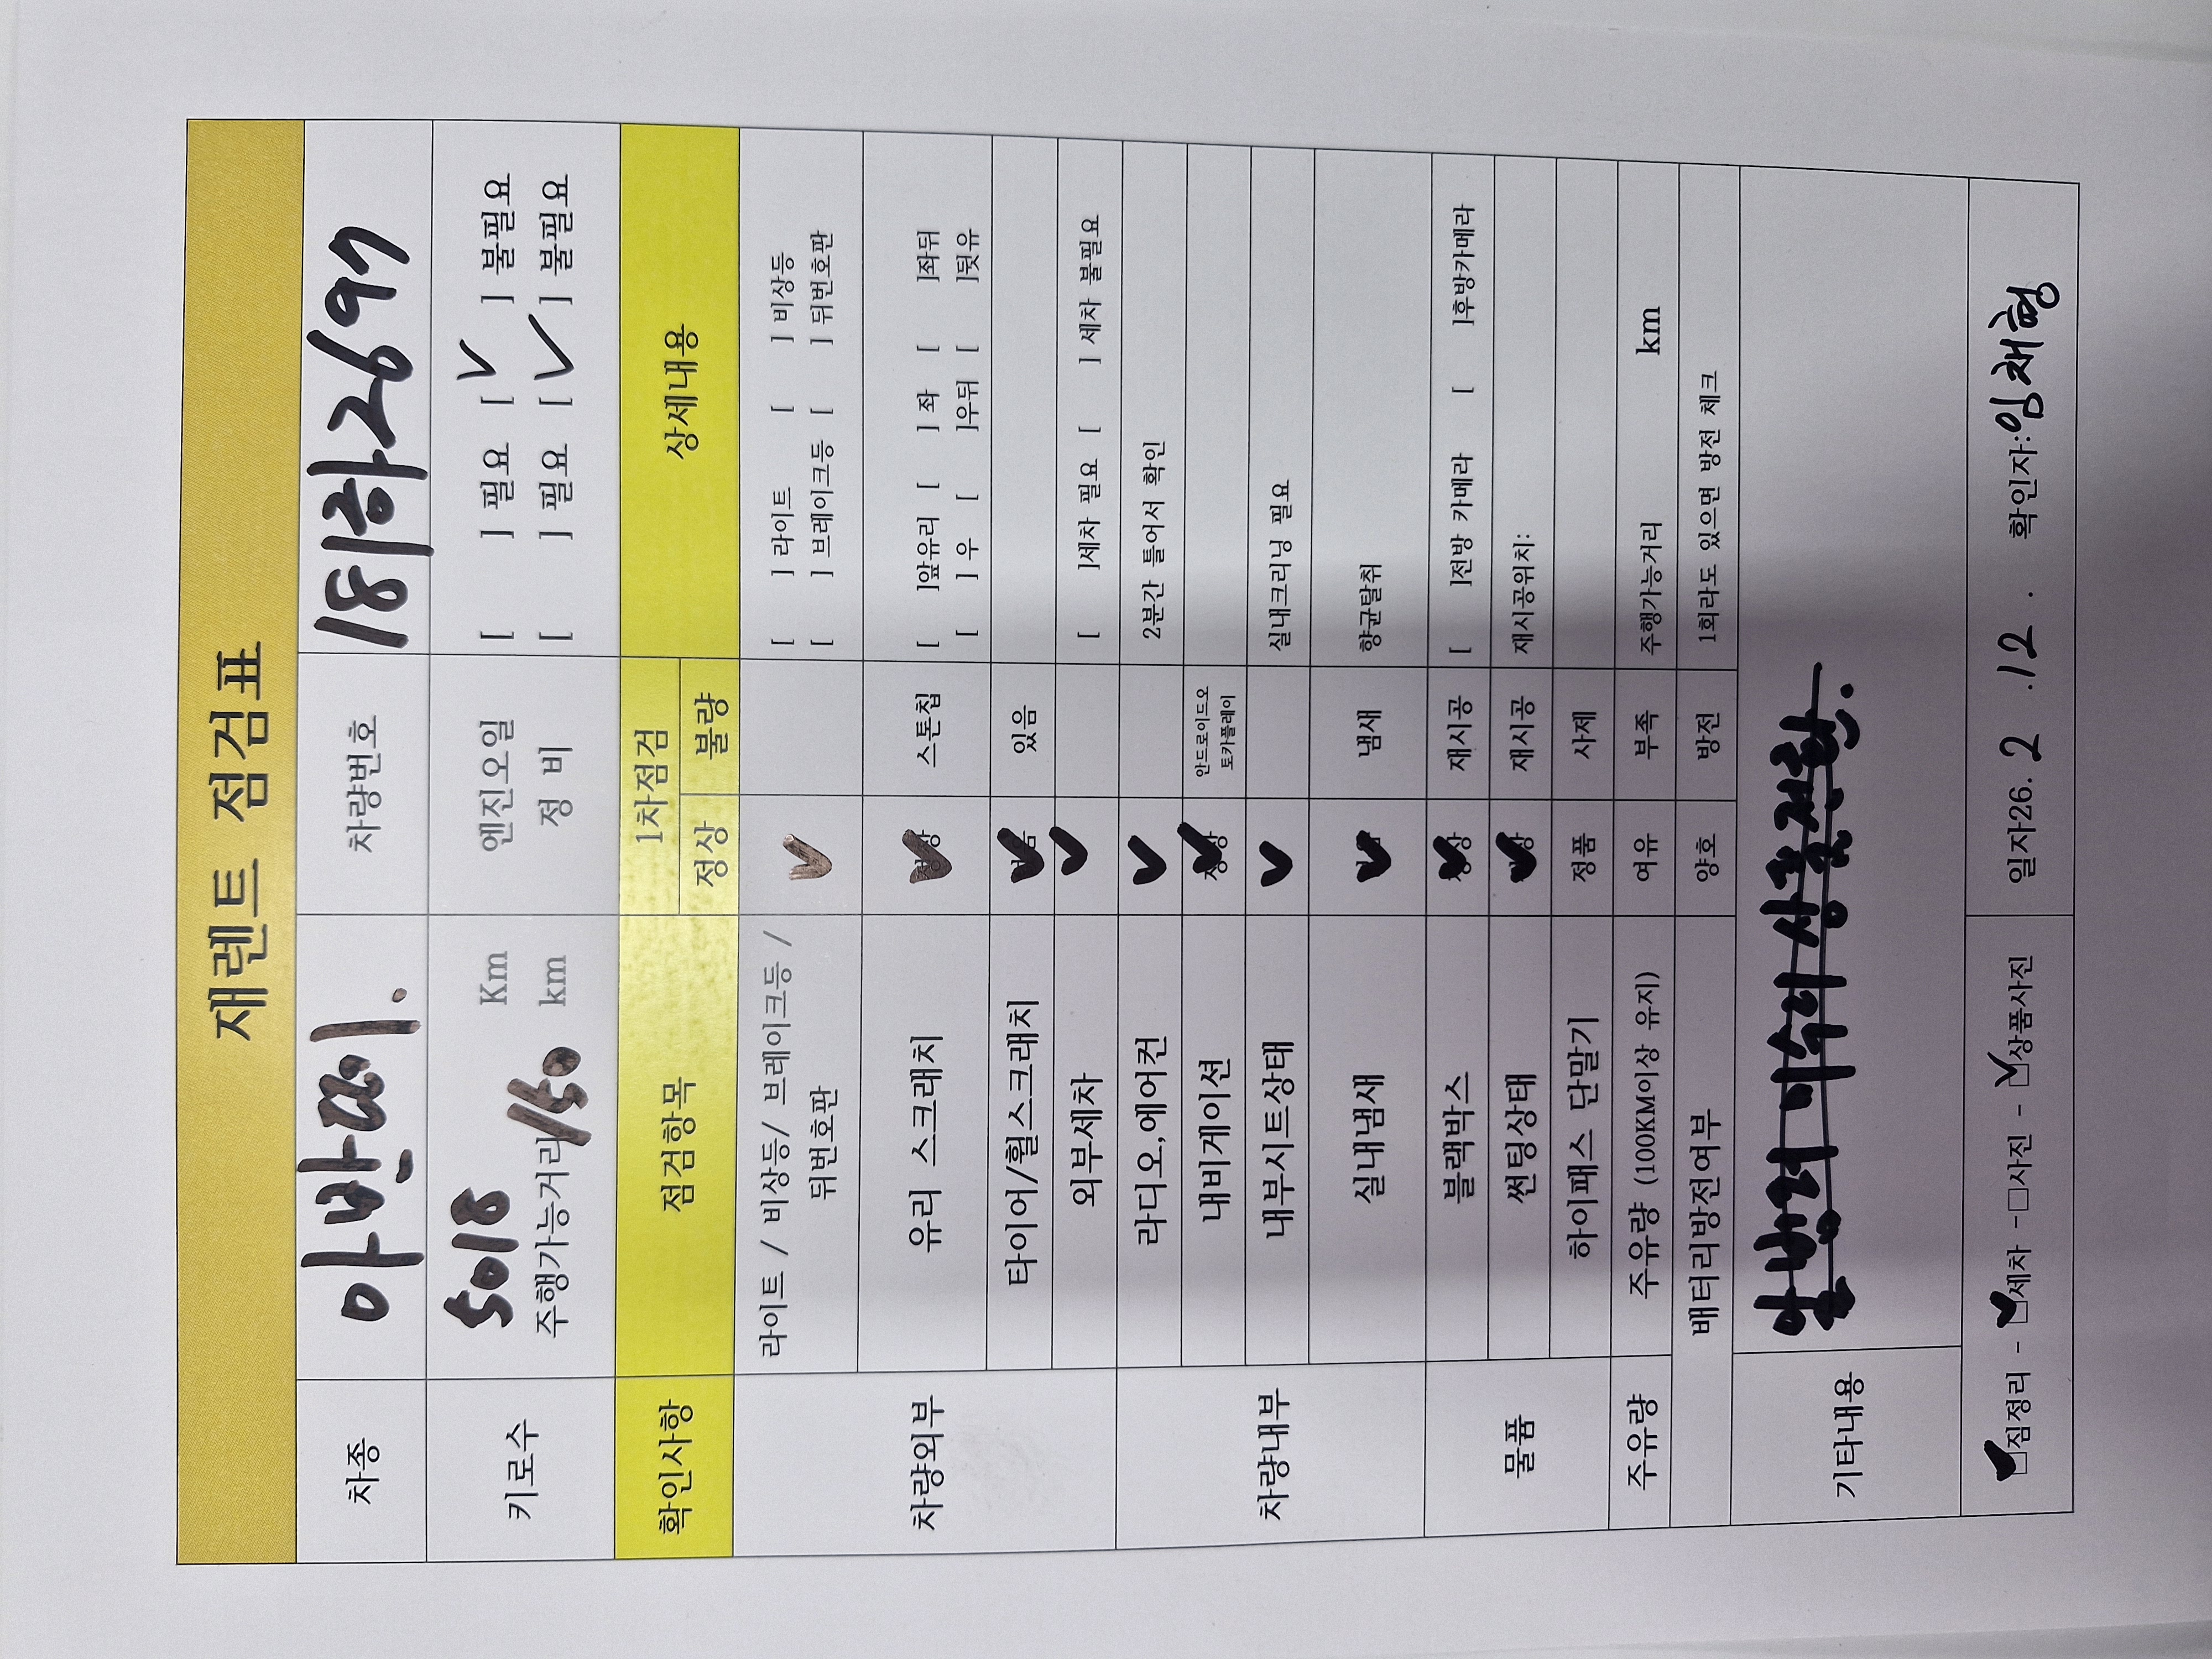 재렌트 점검표
차종 아반떼. 차량번호 181하2697
키로수 5018 Km 엔진오일 [ ] 필요 [ ✓ ] 불필요
주행가능거리 150 km 정 비 [ ] 필요 [ ✓ ] 불필요
확인사항 점검항목 1차점검 상세내용
정상 불량
차량외부 라이트 / 비상등/ 브레이크등 / 뒤번호판 ✓ [ ] 라이트 [ ] 비상등
[ ] 브레이크등 [ ] 뒤번호판
유리 스크래치 정상 ✓ 스톤칩 [ ]앞유리 [ ] 좌 [ ]좌뒤
[ ] 우 [ ]우뒤 [ ]뒷유
타이어/휠스크래치 없음 ✓ 있음
외부세차 ✓ [ ]세차 필요 [ ] 세차 불필요
차량내부 라디오,에어컨 ✓ 2분간 틀어서 확인
내비게이션 정상 ✓ 안드로이드오
토카플레이
내부시트상태 ✓ 실내크리닝 필요
실내냄새 ✓ 냄새 향균탈취
물품 블랙박스 정상 ✓ 재시공 [ ]전방 카메라 [ ]후방카메라
썬팅상태 정상 ✓ 재시공 재시공위치:
하이패스 단말기 정품 사제
주유량 주유량 (100KM이상 유지) 여유 부족 주행가능거리 km
배터리방전여부 양호 방전 1회라도 있으면 방전 체크
기타내용
☑짐정리 - ☑세차 -□사진 - ☑상품사진 일자26. 2 .12 . 확인자:임채형